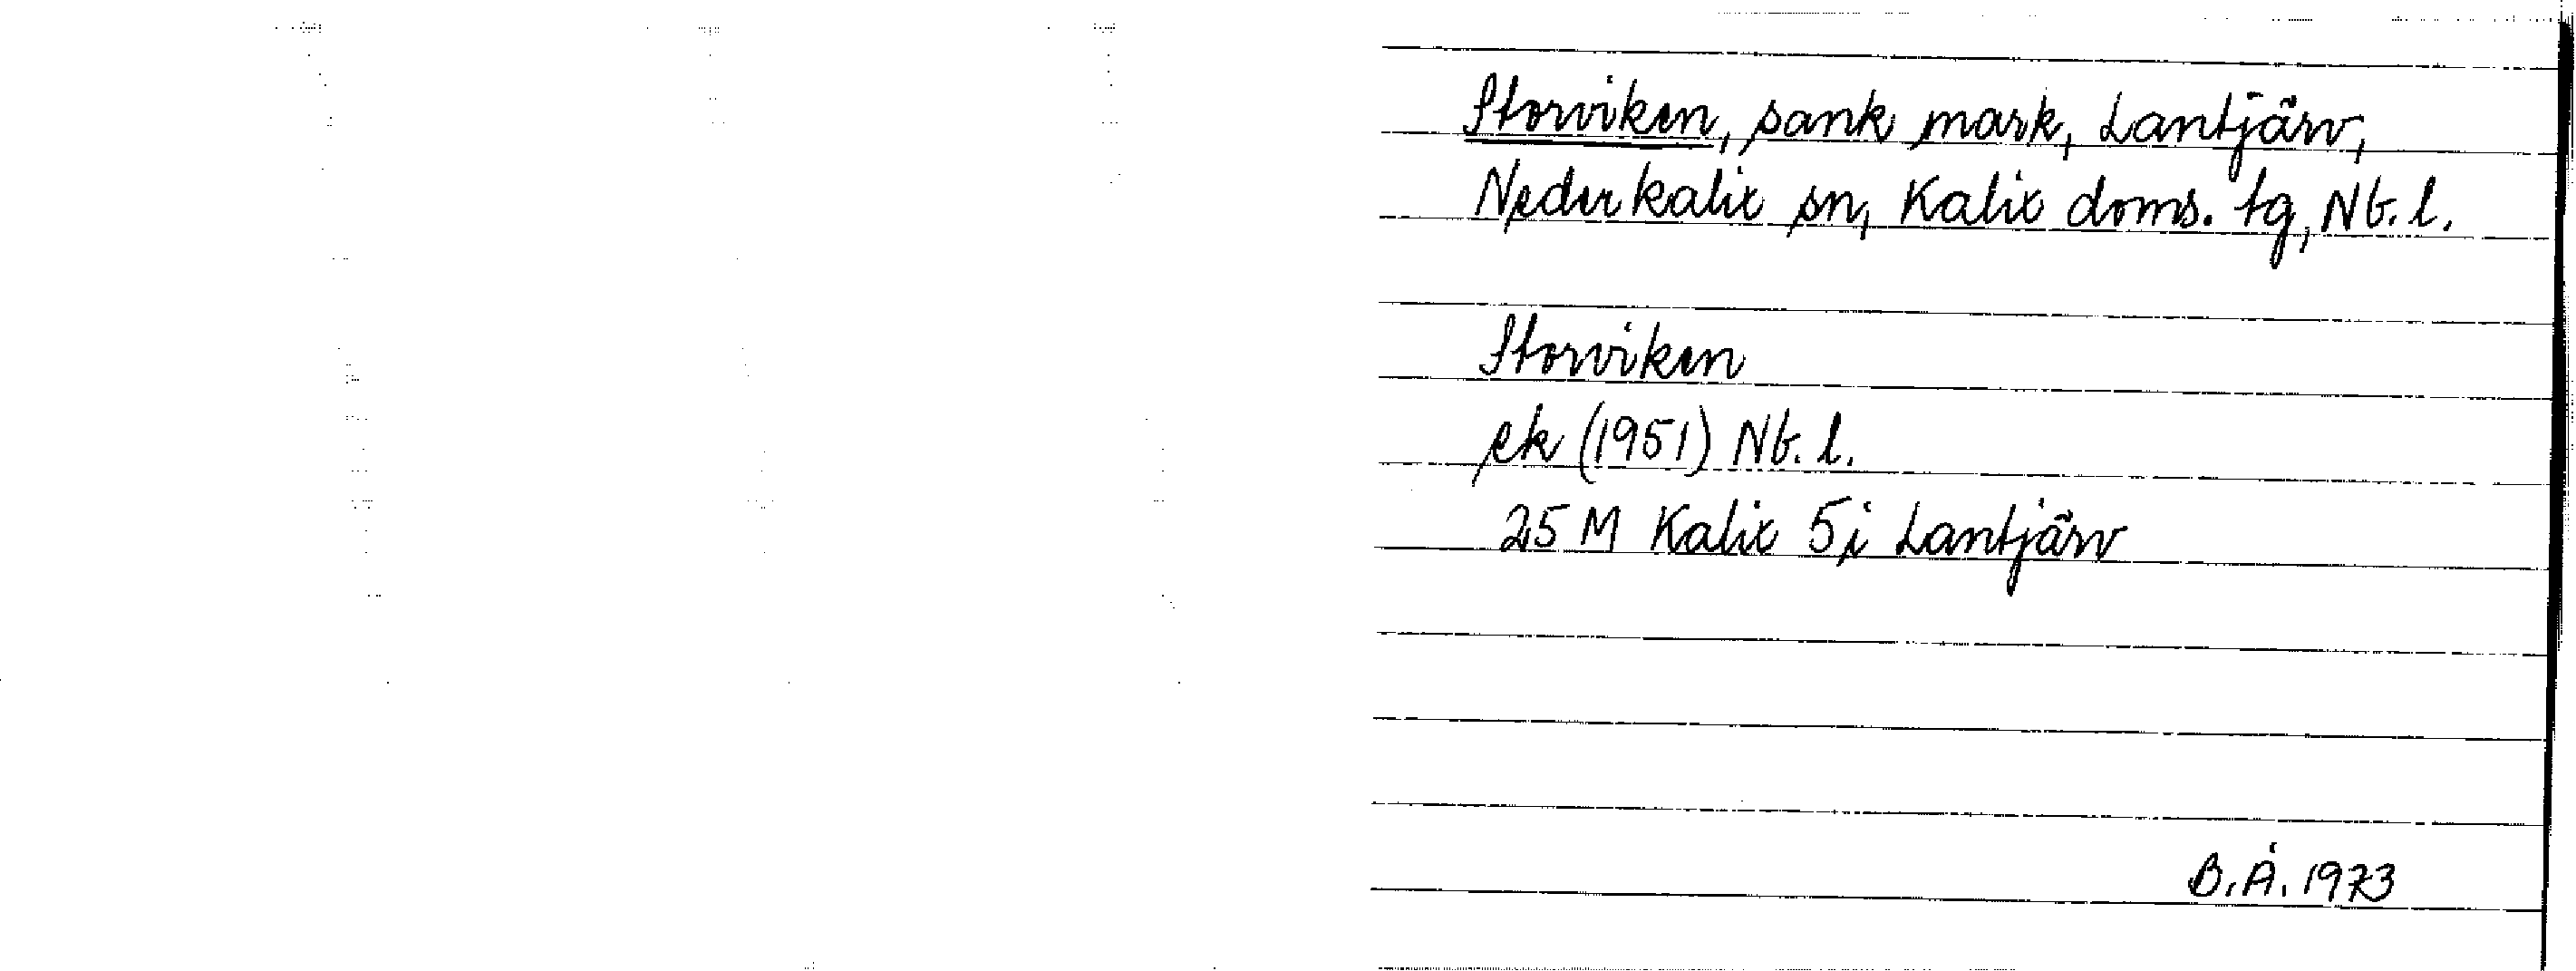 Storviken, sank mark, Lantjärv,
Nederkalix sn, Kalix doms. tg, Nb. l.
Storviken
ek (1951) Nb. l.
25 M Kalix 5i Lantjärv
B.Å. 1973